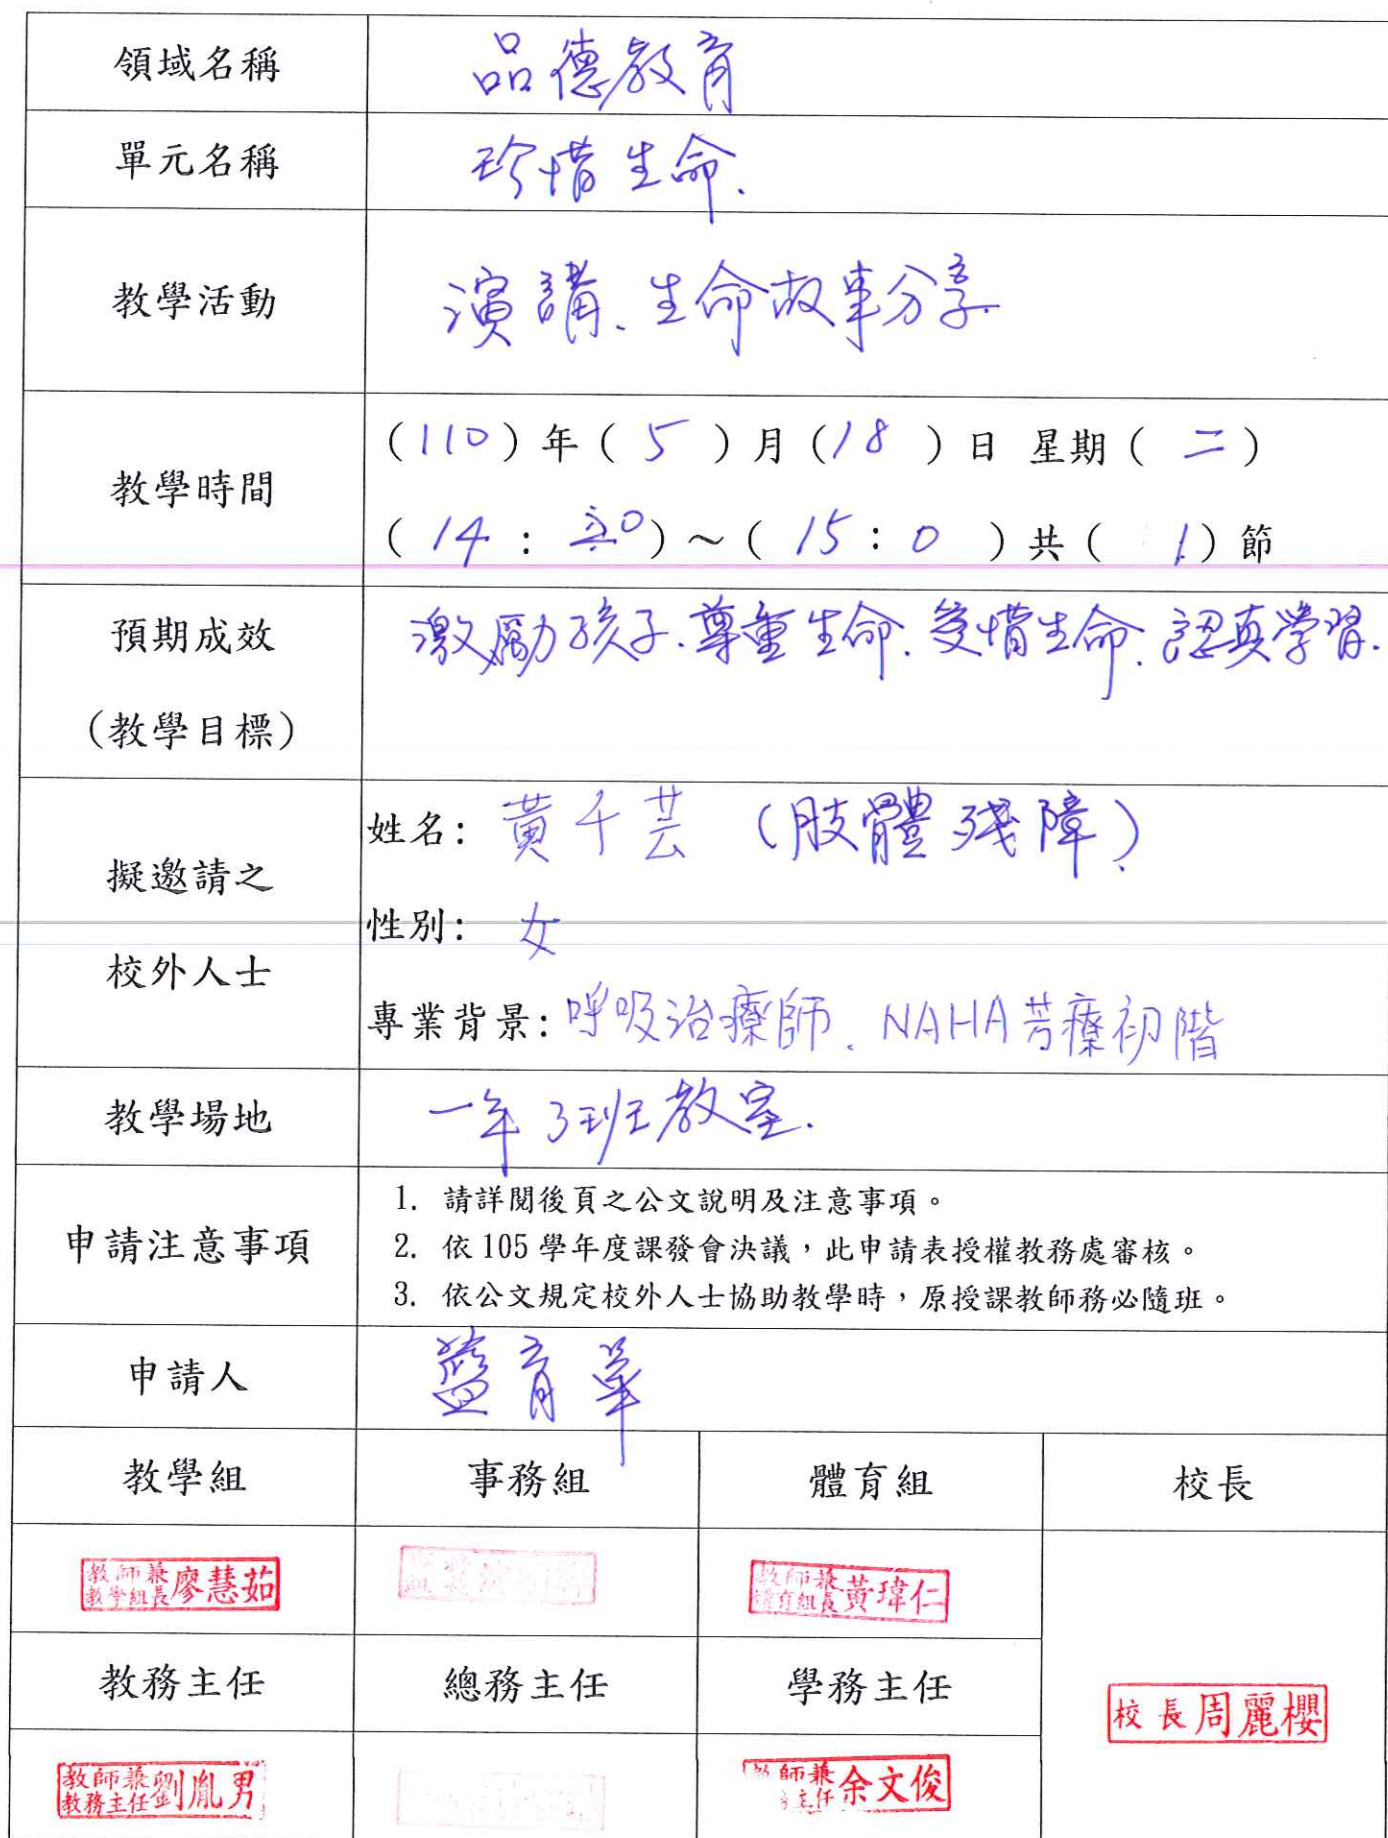 領域名稱 品德教育
單元名稱 珍惜生命.
教學活動 演講、生命故事分享
教學時間
(110)年(5)月(18)日 星期(二)
(14: 0)~(15:0)共(1)節
預期成效
(教學目標)
激勵孩子、尊重生命、愛惜生命、認真學習.
擬邀請之
校外人士
姓名: 黃千芸 (肢體殘障)
性別: 女
專業背景:呼吸治療師、NAHA芳療初階
教學場地 一年3班教室.
申請注意事項
1. 請詳閱後頁之公文說明及注意事項。
2. 依105學年度課發會決議,此申請表授權教務處審核。
3. 依公文規定校外人士協助教學時,原授課教師務必隨班。
申請人 藍育華
教學組 事務組 體育組 校長
教師兼教學組長廖慧茹
教師兼體育組長黃瑋仁
教務主任 總務主任 學務主任
校長周麗櫻
教師兼教務主任劉胤男
師兼主任余文俊